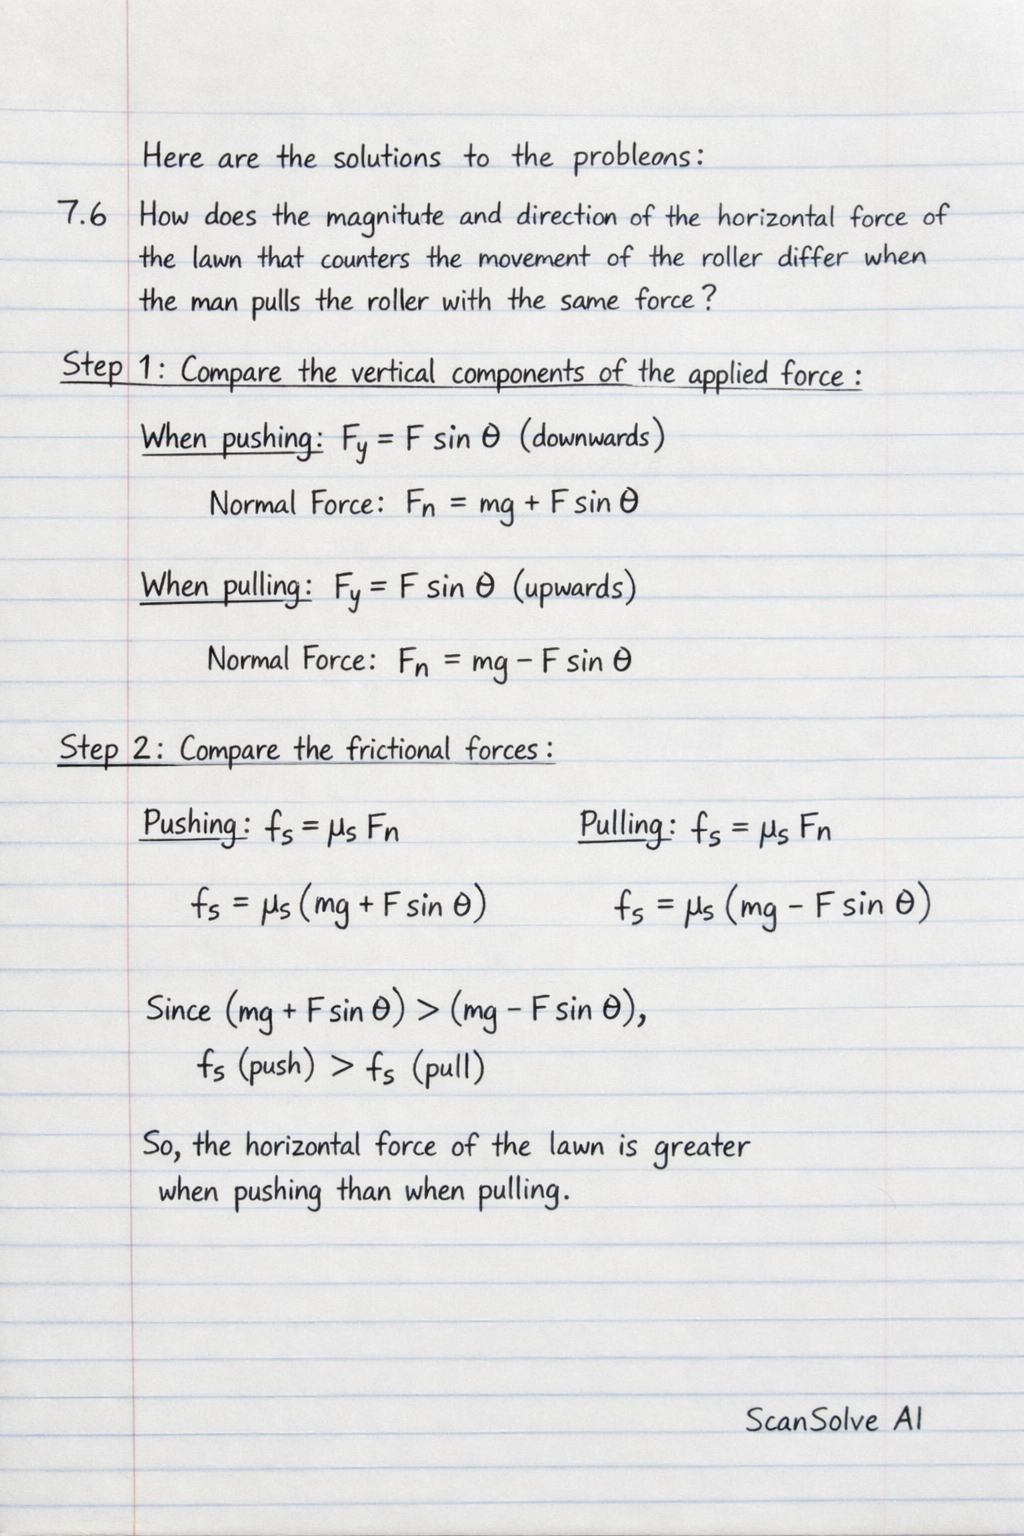 Here are the solutions to the probleons:
7.6 How does the magnitute and direction of the horizontal force of
the lawn that counters the movement of the roller differ when
the man pulls the roller with the same force?
Step 1: Compare the vertical components of the applied force:
When pushing: Fy = F sin θ (downwards)
Normal Force: Fn = mg + F sin θ
When pulling: Fy = F sin θ (upwards)
Normal Force: Fn = mg − F sin θ
Step 2: Compare the frictional forces:
Pushing: fs = μs Fn Pulling: fs = μs Fn
fs = μs (mg + F sin θ) fs = μs (mg − F sin θ)
Since (mg + F sin θ) > (mg − F sin θ),
fs (push) > fs (pull)
So, the horizontal force of the lawn is greater
when pushing than when pulling.
ScanSolve AI